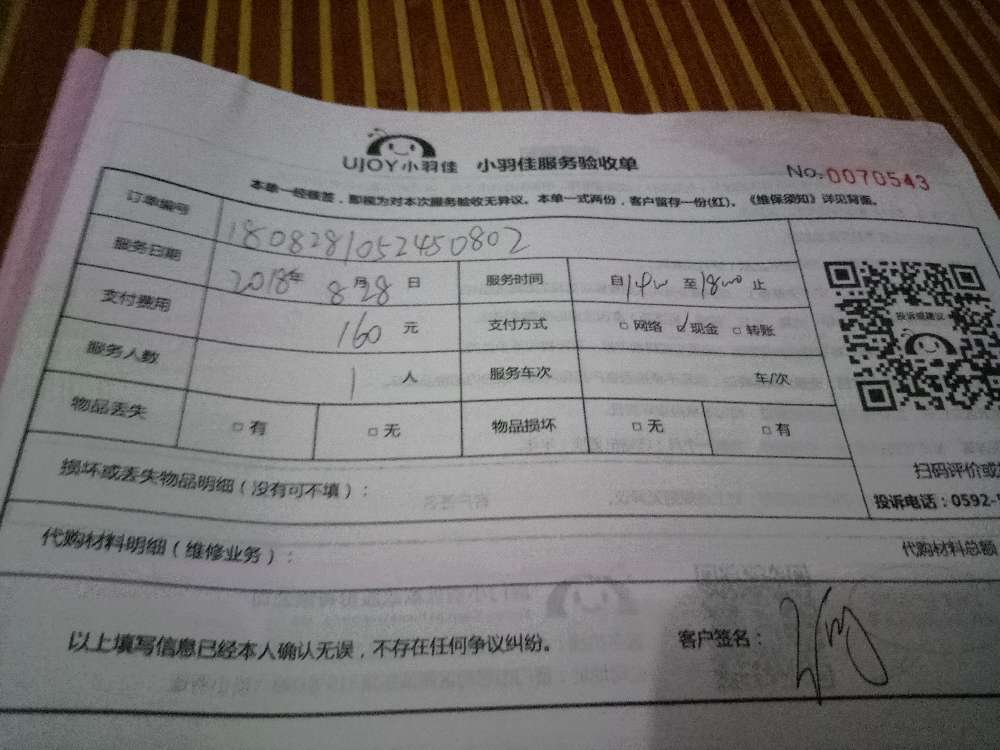 UJOY小羽佳 小羽佳服务验收单
No.0070543
本单一经核签，即视为对本次服务验收无异议。本单一式两份，客户留存一份(红)。《维保须知》详见背面。
订单编号 1808281052450802
服务日期 2018年 8月28日 服务时间 自14:00 至18:00 止
支付费用 160 元 支付方式 □网络 ☑现金 □转账
服务人数 1 人 服务车次 车/次
物品丢失 □有 □无 物品损坏 □无 □有
投诉或建议
扫码评价或
投诉电话：0592-
损坏或丢失物品明细（没有可不填）：
代购材料明细（维修业务）： 代购材料总额
以上填写信息已经本人确认无误，不存在任何争议纠纷。 客户签名：